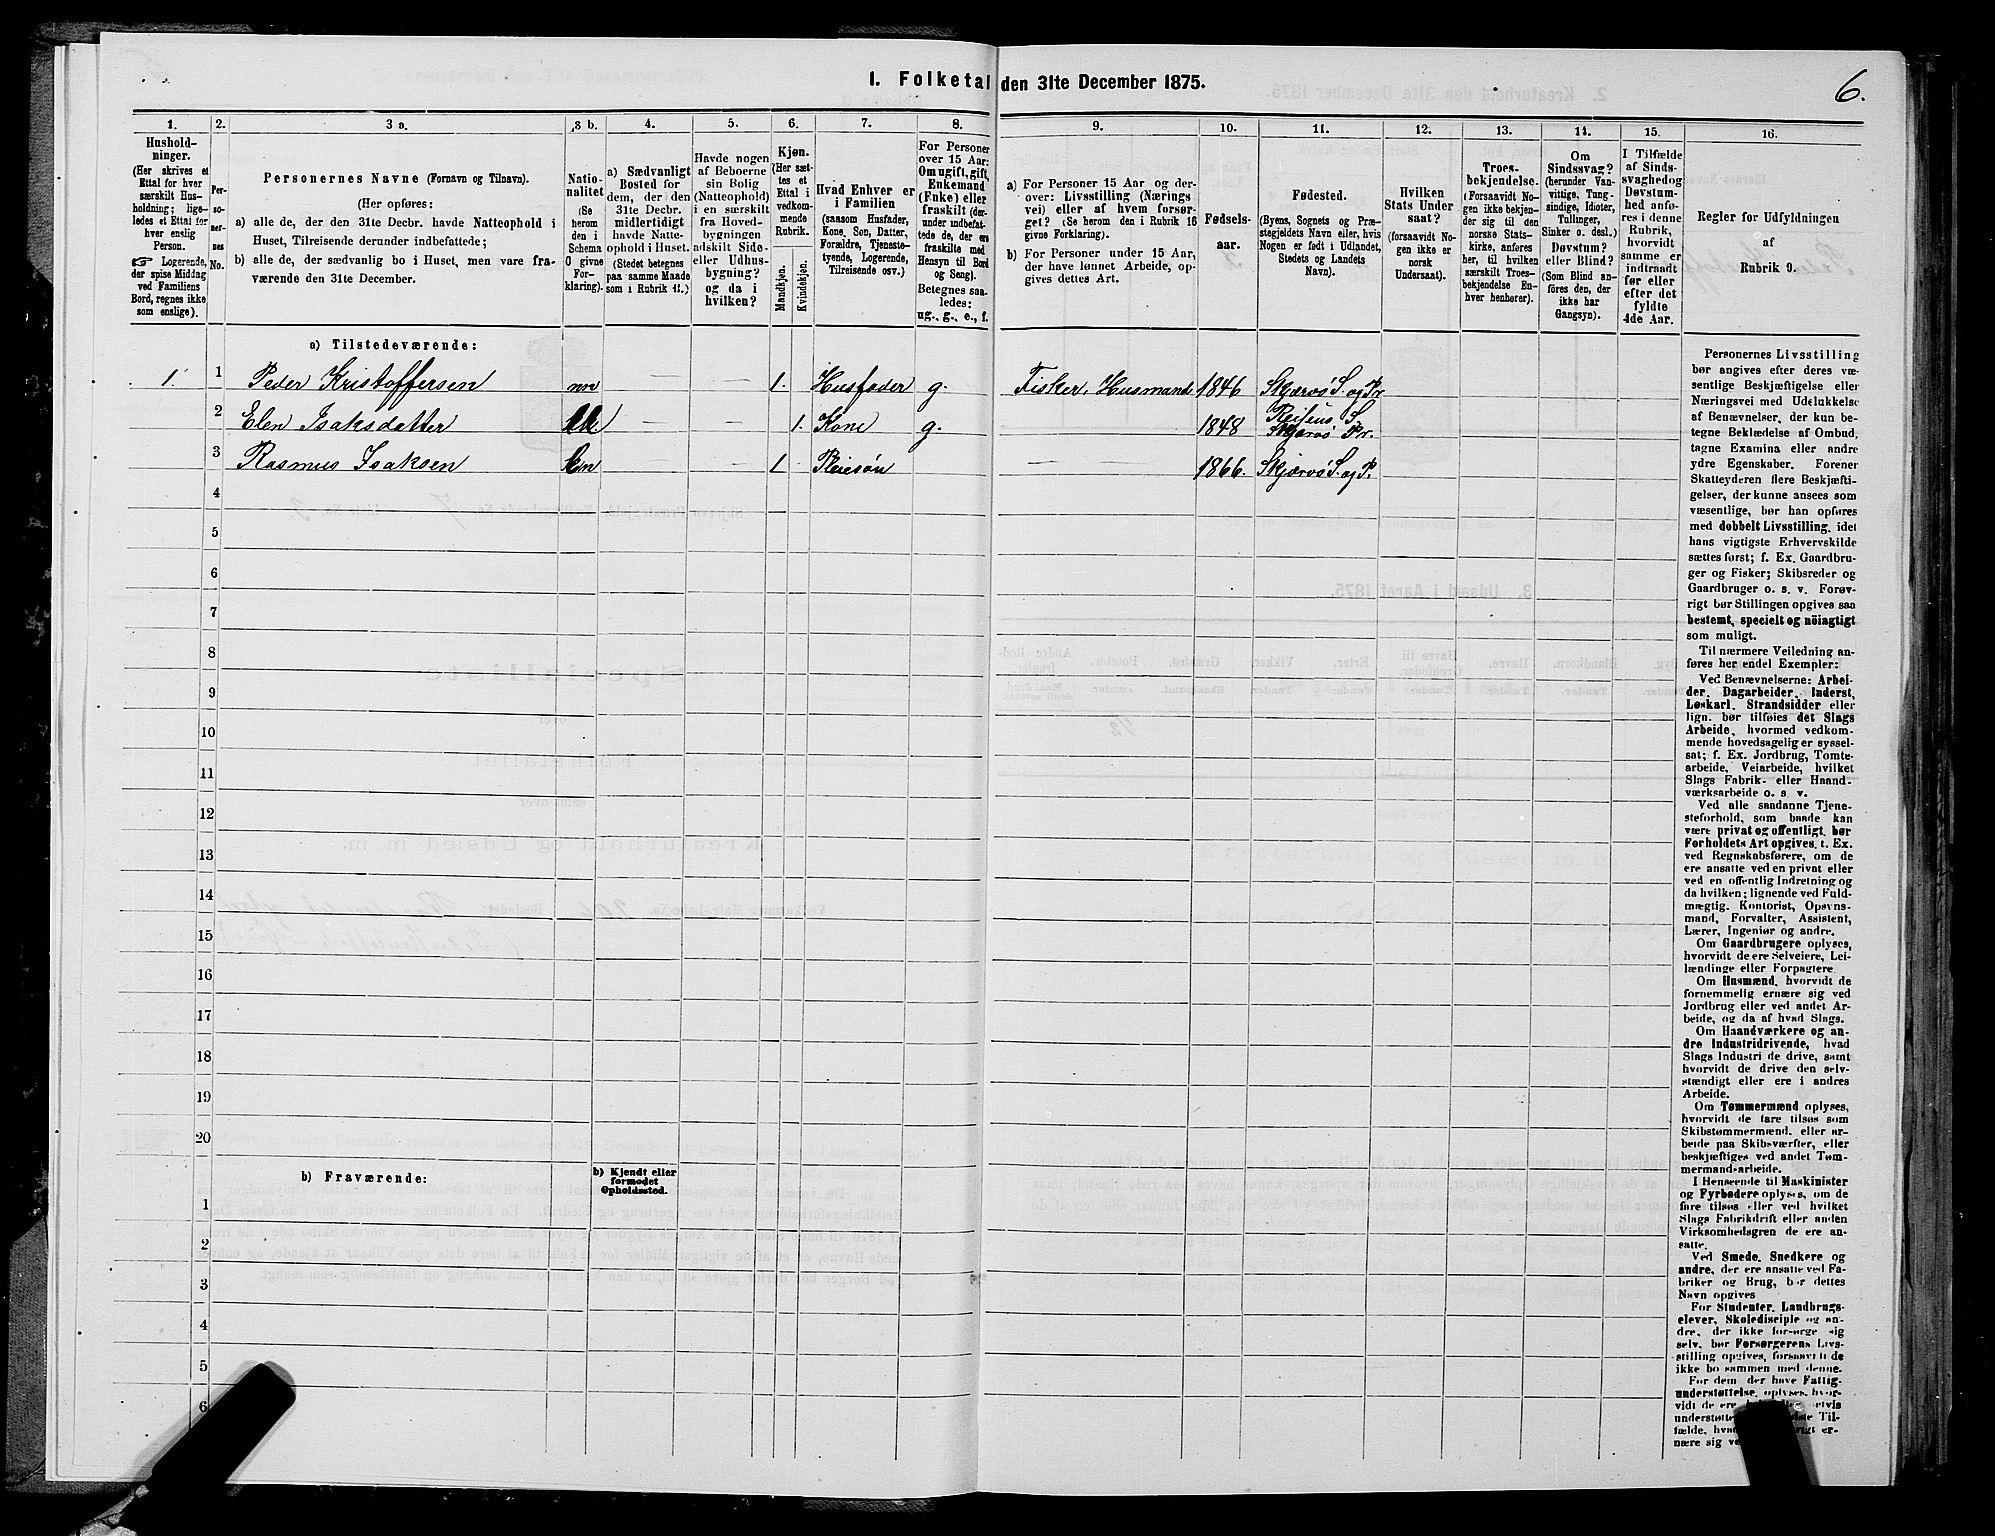 6.
1. Folketal den 31te December 1875.
1.
Hushold-
ninger.
(Her skrives et
Ettal for hver
særskilt Hus-
holdning; lige-
ledes et Ettal for
hver enslig
Person.
Logerende,
der spise Middag
ved Familiens
Bord, regnes ikke
som enslige).
2.
Per-
so-
ner-
nes
No.
3 a.
Personernes Navne (Fornavn og Tilnavn).
(Her opføres:
a) alle de, der den 31te Decbr. havde Natteophold i
Huset, Tilreisende derunder indbefattede;
b) alle de, der sædvanlig bo i Huset, men vare fra-
værende den 31te December.
3 b.
Natio-
nalitet
(Se
herom
den i
Schema
O givne
For-
klaring).
4.
a) Sædvanligt
Bosted for
dem, der den
31te Decbr.
midlertidigt
havde Natte-
ophold i Huset.
(Stedet betegnes
paa samme Maade
som i Rubrik 11.)
5.
Havde nogen
af Beboerne
sin Bolig
(Natteophold)
i en særskilt
fra Hoved-
bygningen
adskilt Side-
eller Udhus-
bygning?
og da i
hvilken?
6.
Kjøn.
(Her sæt-
tes et
Ettal i
vedkom-
mende
Rubrik.
Mandkjøn.
Kvindekjøn.
7.
Hvad Enhver er
i Familien
(saasom Husfader,
Kone, Søn, Datter,
Forældre, Tjeneste-
tyende, Logerende,
Tilreisende osv.)
8.
For Personer
over 15 Aar:
Om ugift, gift,
Enkemand
(Enke) eller
fraskilt (der-
under indbefat-
tede de, der ere
fraskilte med
Hensyn til Bord
og Seng).
Betegnes saa-
ledes:
ug., g., e., f.
9.
a) For Personer 15 Aar og der-
over: Livsstilling (Nærings
vei) eller af hvem forsør-
get? (Se herom den i Rubrik 16
givne Forklaring).
b) For Personer under 15 Aar,
der have lønnet Arbeide, op-
gives dettes Art.
10.
Fødsels-
aar.
11.
Fødested.
(Byens, Sognets og Præ-
stegjeldets Navn eller, hvis
Nogen er født i Udlandet,
Stedets og Landets
Navn).
12.
Hvilken
Stats Under
saat?
(forsaavidt No-
gen ikke er
norsk
Undersaat).
13.
Troes-
bekjendelse.
(Forsaavidt No-
gen ikke bekjen-
der sig til den
norske Stats-
kirke, anføres
her, til hvilken
særskilt Troes-
bekjendelse En-
hver henhører).
14.
Om
Sindssvag?
(herunder Van-
vittige, Tung-
sindige, Idioter,
Tullinger,
Sinker o. desl.)
Døvstum?
eller Blind?
(Som Blind an-
føres den, der
ikke har
Gangsyn).
15.
I Tilfælde
af Sinds-
svaghed og
Døvstum-
hed anfø-
res i denne
Rubrik,
hvorvidt
samme er
indtraadt
før eller
efter det
fyldte
4de Aar.
16.
Regler for Udfyldningen
af
Rubrik 9.
a) Tilstedeværende:
1. 1 Peder Kristoffersen nn — — 1. Husfader g. Fisker, Husmand 1846 Skjærvö S. og Pr
2 Elen Isaksdatter — — 1. Kone g. 1848 S. Skjervö Pr.
3 Rasmus Isaksen — — 1 Pleiesön — 1866. Skjærvö S. og P.
4
5
6
7
8
9
10
11
12
13
14
15
16
17
18
19
20
b) Fraværende:
b) Kjendt eller
formodet
Opholdssted.
1
2
3
4
5
6
Personernes Livsstilling
bør angives efter deres væ-
sentlige Beskjæftigelse eller
Næringsvei med Udelukkelse
af Benævnelser, der kun be-
tegne Beklædelse af Ombud,
tagne Examina eller andre
ydre Egenskaber. Forener
Skatteyderen flere Beskjæfti-
gelser, der kunne ansees som
væsentlige, bør han opføres
med dobbelt Livsstilling, idet
hans vigtigste Erhvervskilde
sættes først; f. Ex. Gaardbru-
ger og Fisker; Skibsreder og
Gaardbruger o. s. v. Forøv-
rigt bør Stillingen opgives saa
bestemt, specielt og nöiagtigt
som muligt.
Til nærmere Veiledning an-
føres her endel Exempler:
Ved Benævnelserne: Arbei-
der, Dagarbeider, Inderst,
Løskarl, Strandsidder eller
lign. bør tilføies det Slags
Arbeide, hvormed vedkom-
mende hovedsagelig er syssel-
sat; f. Ex. Jordbrug, Tomte-
arbeide, Veiarbeide, hvilket
Slags Fabrik- eller Haand-
værksarbeide o. s. v.
Ved alle saadanne Tjene-
steforhold, som baade kan
være privat og offentligt, bør
Forholdets Art opgives, f. Ex.
ved Regnskabsførere, om de
ere ansatte ved en privat eller
ved en offentlig Indretning og
da hvilken; lignende ved Fuld-
mægtig, Kontorist, Opsyns-
mand, Forvalter, Assistent,
Lærer, Ingeniør og andre.
Om Gaardbrugere oplyses,
hvorvidt de ere Selveiere, Lei-
lændinge eller Forpagtere.
Om Husmænd, hvorvidt de
fornemmelig ernære sig ved
Jordbrug eller ved andet Ar-
beide, og da af hvad Slags.
Om Haandværkere og an-
dre Industridrivende, hvad
Slags Industri de drive, samt
hvorvidt de drive den selv-
stændigt eller ere i andres
Arbeide.
Om Tømmermænd oplyses,
hvorvidt de fare tilsøs som
Skibstømmermænd, eller ar-
beide paa Skibsværfter, eller
beskjæftiges ved andet Tøm-
mermandsarbeide.
I Henseende til Maskinister
og Fyrbødere oplyses, om de
fare tilsøs eller ved hvilket
Slags Fabrikdrift eller anden
Virksomhedsgren de ere an-
satte.
Ved Smede, Snedkere og
andre, der ere ansatte ved Fa-
briker og Brug, bør dettes
Navn opgives
For Studenter, Landbrugs-
elever, Skoledisciple og an-
dre, der ikke forsørge sig
selv, bør Forsørgerens Livs-
stilling opgives, forsaavidt de
ikke bo sammen med denne.
For dem, der have Fattig-
understøttelse, oplyses, hvor-
vidt de ere
understøtte Til-
fælde, er-
nære sig